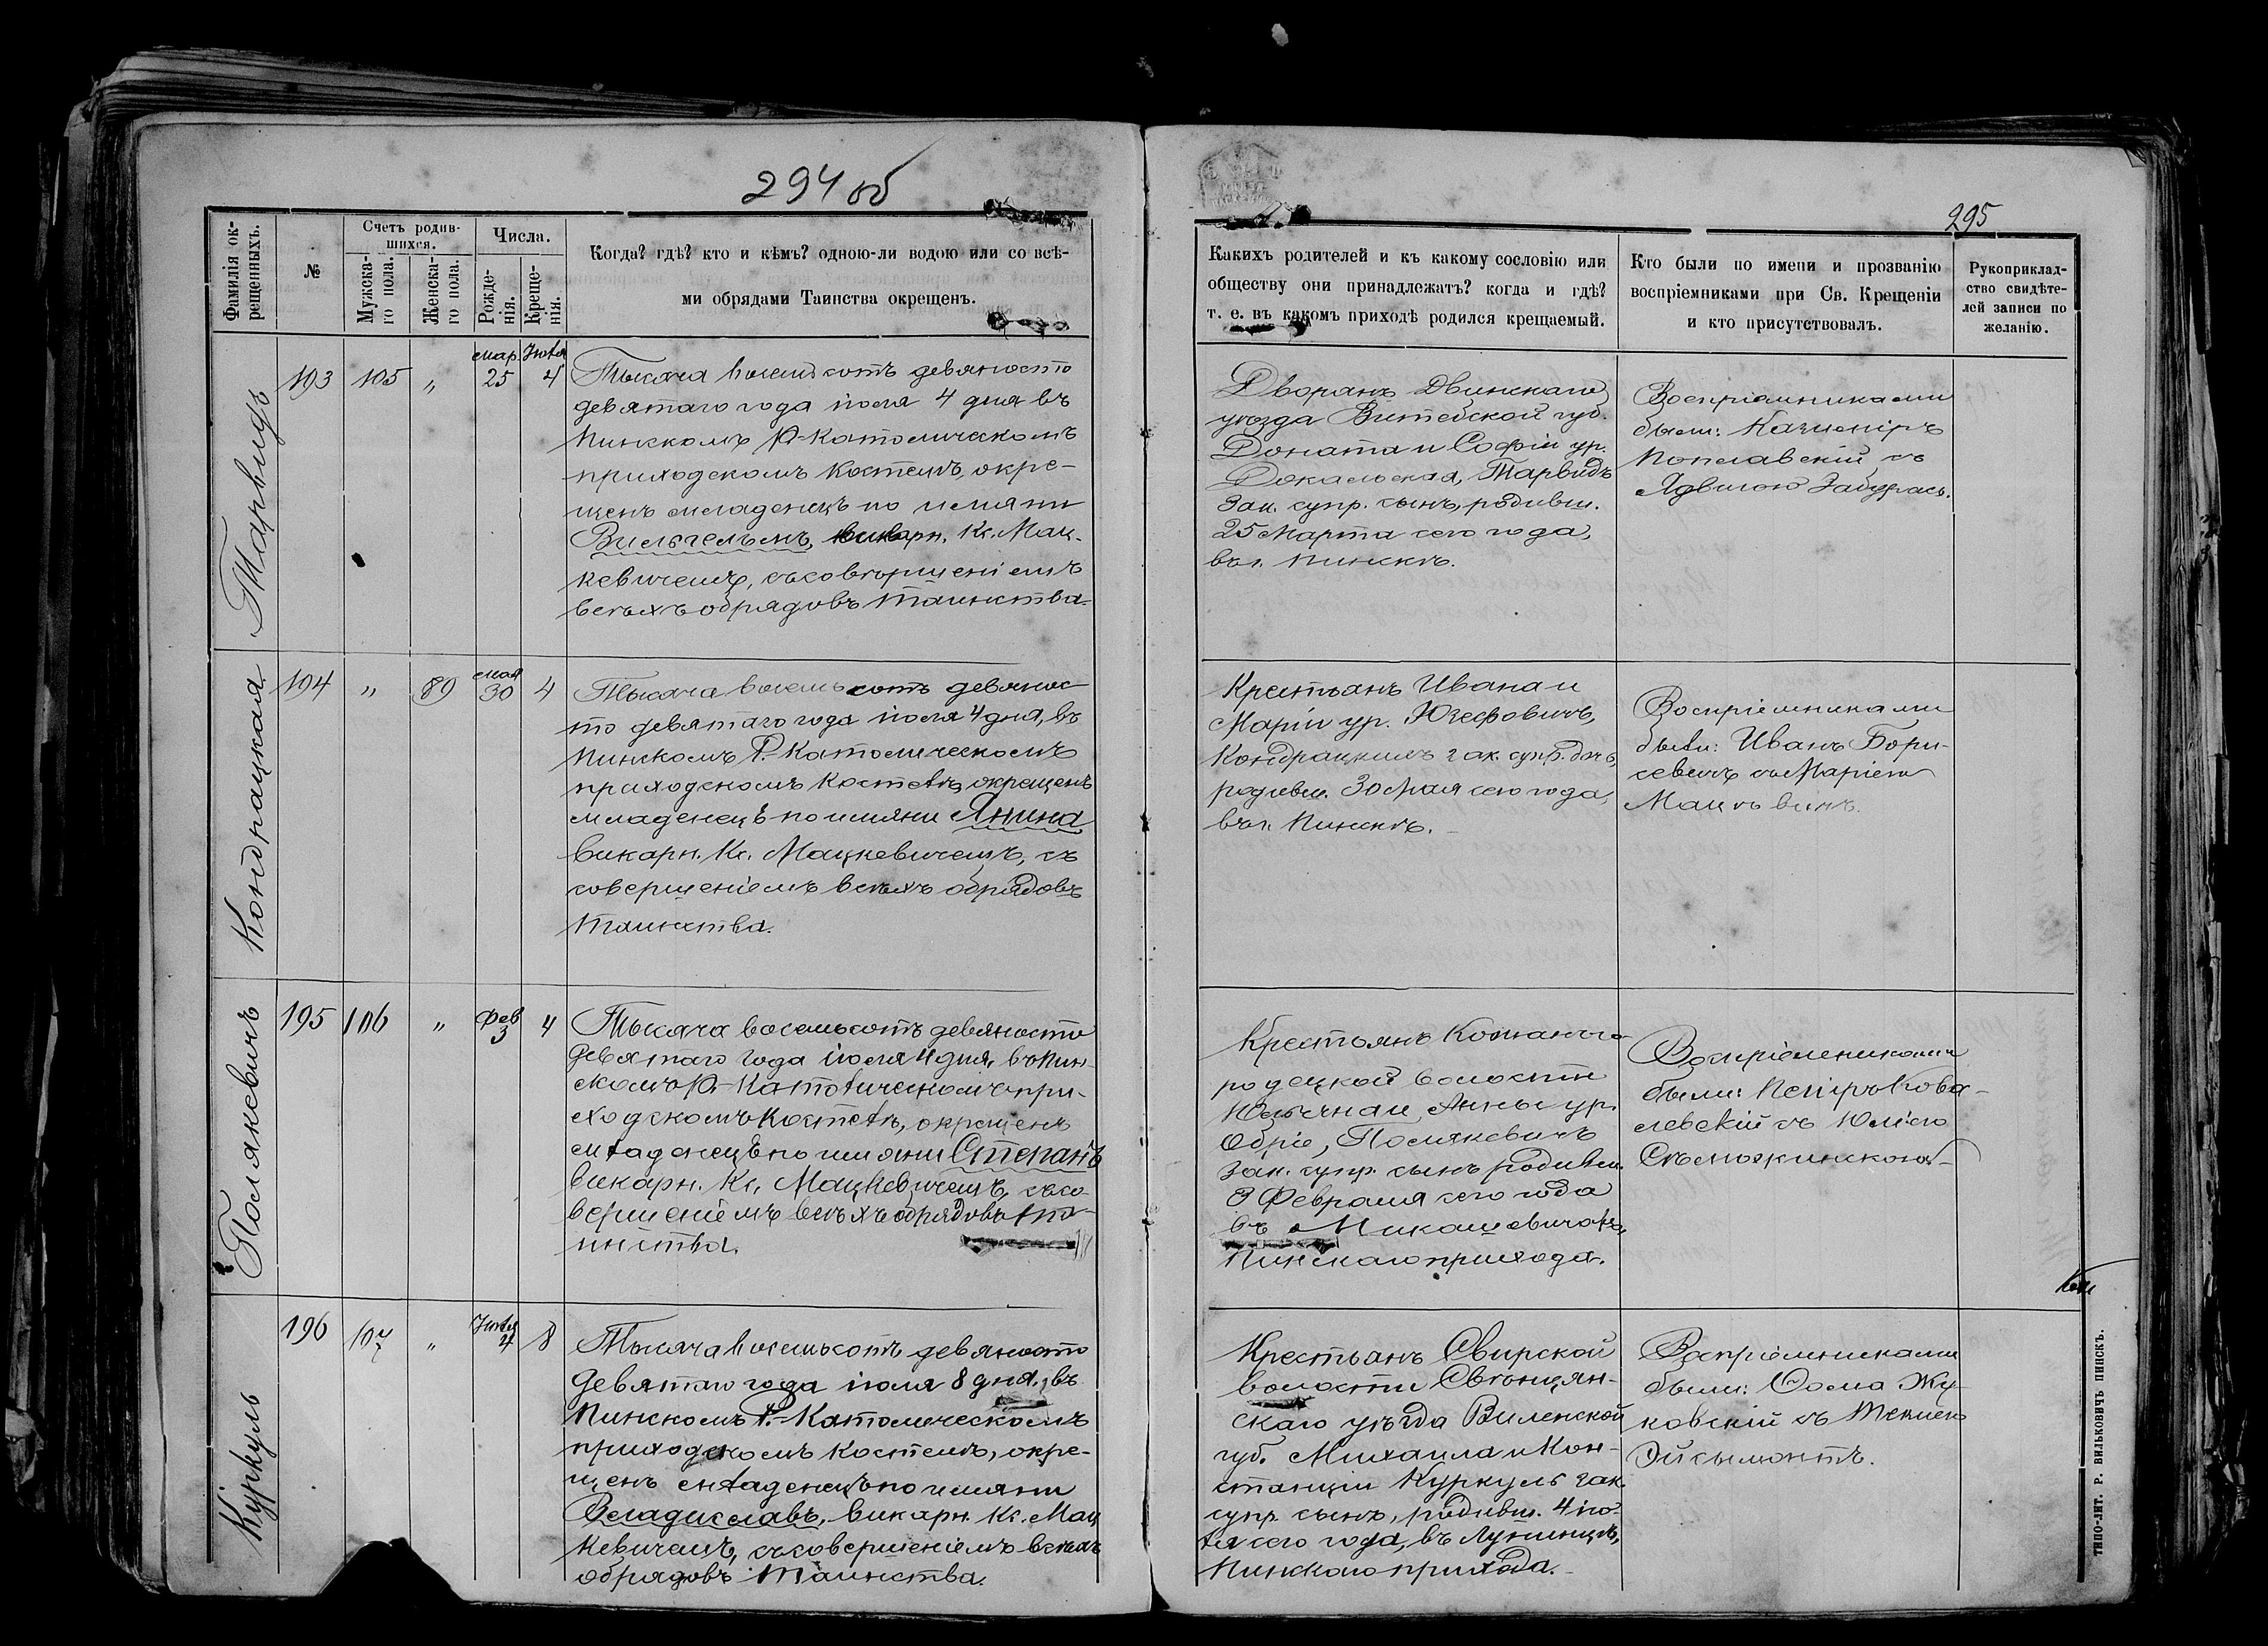 294 об
Фамилія ок-
рещенныхъ.
№
Счетъ родив-
шихся.
Мужска-
го пола.
Женска-
го пола.
Числа.
Рожде-
нія.
Креще-
нія.
Когда? гдѣ? кто и кѣмъ? одною-ли водою или со всѣ-
ми обрядами Таинства окрещенъ.
Тарвидъ
193 105 " мар. 25 Іюля 4
Тысяча восемьсотъ девяносто
девятаго года іюля 4 дня въ
Пинскомъ Р-Католическомъ
приходскомъ костелѣ, окре-
щенъ младенецъ по имяни
Вильгельмъ, викарн. Кс. Мац-
кевичемъ, съ совершеніемъ
всѣхъ обрядовъ таинства.
Кондрацкая
194 " 89 мая 30 4
Тысяча восемьсотъ девянос-
то девятаго года іюля 4 дня, въ
Пинскомъ Р.-Католическомъ
приходскомъ костелѣ, окрещенъ
младенецъ по имяни Янина
викарн. Кс. Мацкевичемъ, съ
совершеніемъ всѣхъ обрядовъ
таинства.
Полякевичъ
195 106 " Фев 3 4
Тысяча восемьсотъ девяносто
девятаго года іюля 4 дня, въ Пин-
скомъ Р.-Католическомъ при-
ходскомъ костелѣ, окрещенъ
младенецъ по имяни Степанъ
викарн. Кс. Мацкевичемъ, съ со-
вершеніемъ всѣхъ обрядовъ та-
инства.
Куркуль
196 107 " Іюля 4 8
Тысяча восемьсотъ девяносто
девятаго года іюля 8 дня, въ
Пинскомъ Р.-Католическомъ
приходскомъ костелѣ, окре-
щенъ младенецъ по имяни
Владиславъ, викарн. Кс. Мац
кевичемъ, съ совершеніемъ всѣхъ
обрядовъ таинства.
295
Какихъ родителей и къ какому сословію или
обществу они принадлежатъ? когда и гдѣ?
т. е. въ какомъ приходѣ родился крещаемый.
Кто были по имени и прозванію
воспріемниками при Св. Крещеніи
и кто присутствовалъ.
Рукоприклад-
ство свидѣте-
лей записи по
желанію.
Дворянъ Двинскаго
уѣзда Витебской губ.
Доната и Софіи ур.
Тарвидъ
Зак. супр. сынъ, родивш.
25 Марта сего года,
въ г. Пинскѣ.
Воспріемниками
были: Казиміръ
Поплавскій съ
Ядвигою
Крестьянъ Ивана и
Маріи ур. Юзефовичъ,
Кондрацкихъ зак. супр. дочь,
родивш. 30 Мая сего года,
въ г. Пинскѣ.
Воспріемниками
были: Иванъ Бори-
севичъ съ Маріею
Крестьянъ Кожангo-
родецкой волости
Юльяна и Анны ур.
Полякевичъ
зак. супр. сынъ родивш.
3 Февраля сего года
въ Микашевичахъ,
Пинскаго прихода.
Воспріемниками
были: Петръ Кова-
левскій съ Юліею
Крестьянъ Свирской
волости Свѣнцян-
скаго уѣзда Виленской
губ. Михаила и Кон-
станціи Куркуль зак.
супр. сынъ, родивш. 4 ію-
ля сего года, въ Лунинцѣ,
Пинскаго прихода.
Воспріемниками
были: Ѳома Жу-
ковскій съ Теклею
Эйсымонтъ.
ТИПО-ЛИТ. Р. ВИЛЬКОВИЧЪ ПИНСКЪ.